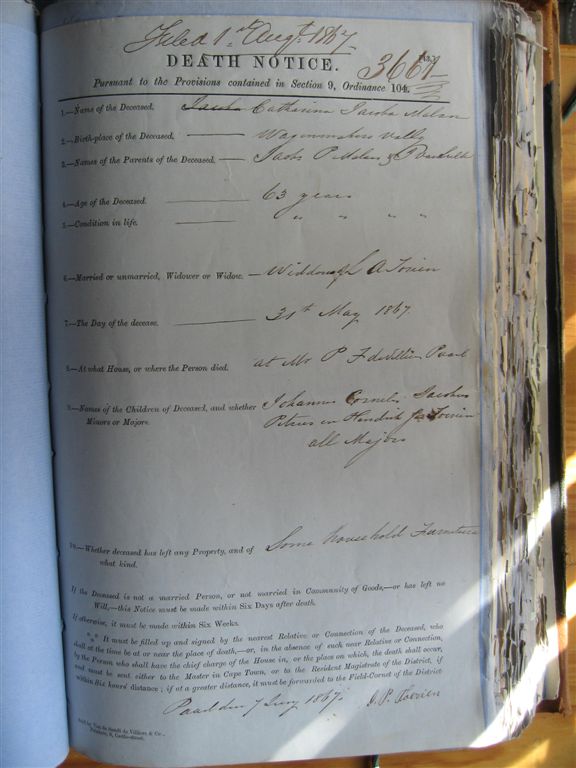 Filed 1st Augt. 1867
DEATH NOTICE.
No. 3661
Pursuant to the Provisions contained in Section 9, Ordinance 104.
1.—Name of the Deceased. Jacoba Catharina Jacoba Malan
2.—Birth-place of the Deceased. Wagenmakers Valley
3.—Names of the Parents of the Deceased. — Jacob P Malan &
4.—Age of the Deceased. 63 years
5.—Condition in life. " " " "
6.—Married or unmarried, Widower or Widow. — Widdow of L A Toerien
7.—The Day of the decease. 31st May 1867.
8.—At what House, or where the Person died. at Mr P F de Villiers Paarl
9.—Names of the Children of Deceased, and whether Johannes Cornelis Jacobus
Minors or Majors. Petrus en Hendrik Toerien
all Majors
10.—Whether deceased has left any Property, and of Some household Furniture
what kind.
If the Deceased is not a married Person, or not married in Community of Goods,—or has left no
Will,—this Notice must be made within Six Days after death.
If otherwise, it must be made within Six Weeks.
*** It must be filled up and signed by the nearest Relative or Connection of the Deceased, who
shall at the time be at or near the place of death,—or, in the absence of such near Relative or Connection,
by the Person who shall have the chief charge of the House in, or the place on which, the death shall occur,
and must be sent either to the Master in Cape Town, or to the Resident Magistrate of the District, if
within Six hours' distance; if at a greater distance, it must be forwarded to the Field-Cornet of the District
Paarl den 7 Juny 1867. J. P. Toerien
Sold by Van de Sandt de Villiers & Co.,
Printers, 8, Castle-street.